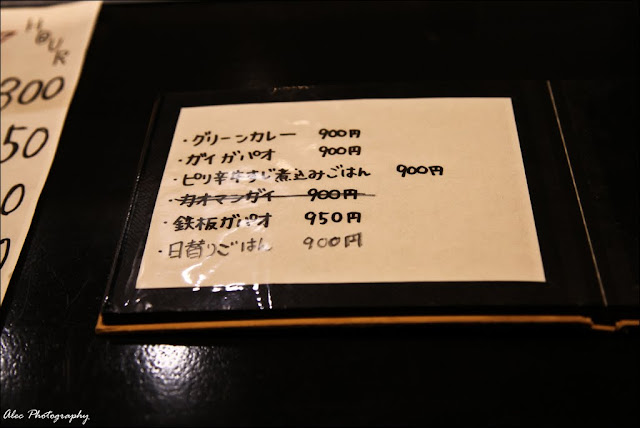 HOUR
300
50
0
・グリーンカレー 900円
・ガイガパオ 900円
・ピリ辛牛すじ煮込みごはん 900円
・カオマンガイ 900円
・鉄板ガパオ 950円
・日替りごはん 900円
Alec Photography